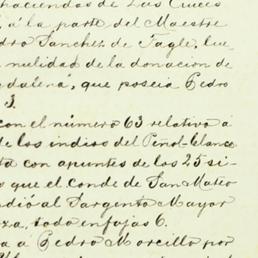 haciendas de Las Cruces
á la parte del Maestre
dro Sanchez de Tagle, lue
nulidad de la donacion de
dalena", que poseia Pedro
3.
con el número 63 relativo á
de los indios del Peñol-Blanco
ta con apuntes de los 25 si-
s que el conde de San Mateo
dió al Sargento Mayor
za, todo en fojas 6.
a á Pedro Morcillo por